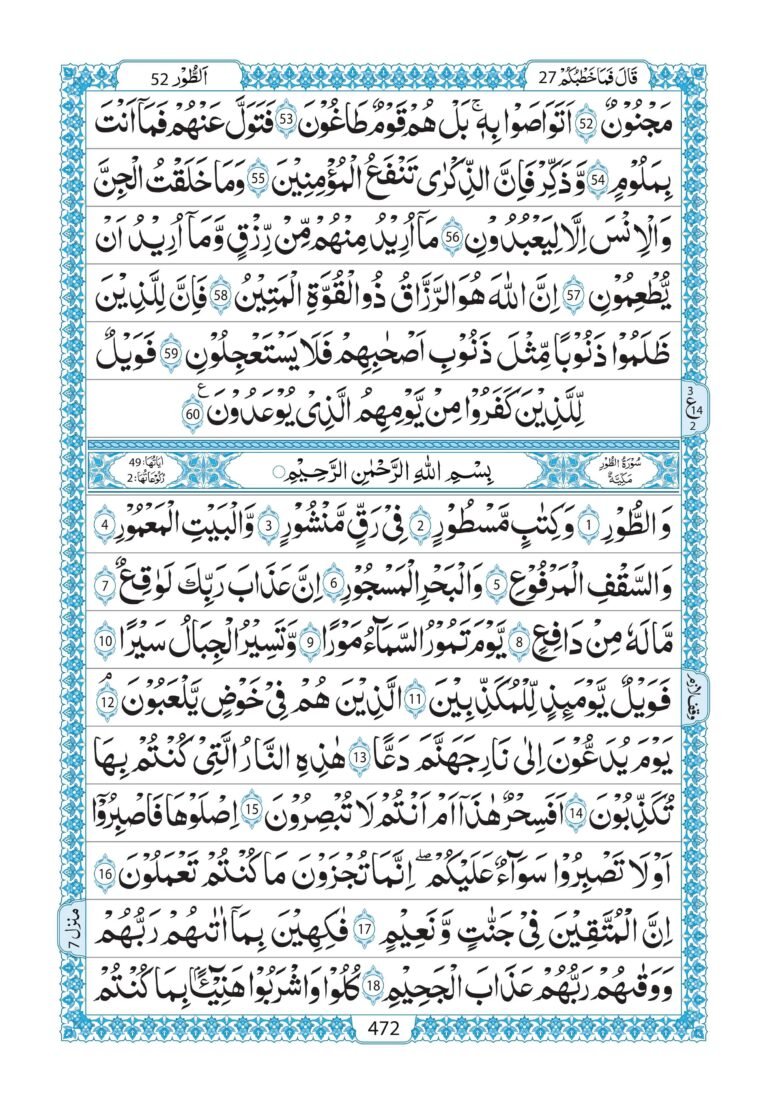 قَالَ فَمَا خَطْبُكُمْ 27
اَلطُّوْر 52
مَجْنُوْنٌ 52 اَتَوَاصَوْا بِهٖ ۚ بَلْ هُمْ قَوْمٌ طَاغُوْنَ 53 فَتَوَلَّ عَنْهُمْ فَمَاۤ اَنْتَ
بِمَلُوْمٍ 54 وَّذَكِّرْ فَاِنَّ الذِّكْرٰى تَنْفَعُ الْمُؤْمِنِيْنَ 55 وَمَا خَلَقْتُ الْجِنَّ
وَالْاِنْسَ اِلَّا لِيَعْبُدُوْنِ 56 مَاۤ اُرِيْدُ مِنْهُمْ مِّنْ رِّزْقٍ وَّمَاۤ اُرِيْدُ اَنْ
يُّطْعِمُوْنِ 57 اِنَّ اللّٰهَ هُوَ الرَّزَّاقُ ذُو الْقُوَّةِ الْمَتِيْنُ 58 فَاِنَّ لِلَّذِيْنَ
ظَلَمُوْا ذَنُوْبًا مِّثْلَ ذَنُوْبِ اَصْحٰبِهِمْ فَلَا يَسْتَعْجِلُوْنِ 59 فَوَيْلٌ
لِّلَّذِيْنَ كَفَرُوْا مِنْ يَّوْمِهِمُ الَّذِىْ يُوْعَدُوْنَ ع 60
3
ع 14
2
سُوْرَةُ الطُّوْرِ
مَكِّيَّةٌ
بِسْمِ اللّٰهِ الرَّحْمٰنِ الرَّحِيْمِ
اٰيَاتُهَا: 49
رُكُوْعَاتُهَا: 2
وَالطُّوْرِ 1 وَكِتٰبٍ مَّسْطُوْرٍ 2 فِىْ رَقٍّ مَّنْشُوْرٍ 3 وَّالْبَيْتِ الْمَعْمُوْرِ 4
وَالسَّقْفِ الْمَرْفُوْعِ 5 وَالْبَحْرِ الْمَسْجُوْرِ 6 اِنَّ عَذَابَ رَبِّكَ لَوَاقِعٌ 7
مَّا لَهٗ مِنْ دَافِعٍ 8 يَّوْمَ تَمُوْرُ السَّمَآءُ مَوْرًا 9 وَّتَسِيْرُ الْجِبَالُ سَيْرًا 10
فَوَيْلٌ يَّوْمَئِذٍ لِّلْمُكَذِّبِيْنَ 11 الَّذِيْنَ هُمْ فِىْ خَوْضٍ يَّلْعَبُوْنَ 12
وقف لازم
يَوْمَ يُدَعُّوْنَ اِلٰى نَارِ جَهَنَّمَ دَعًّا 13 هٰذِهِ النَّارُ الَّتِىْ كُنْتُمْ بِهَا
تُكَذِّبُوْنَ 14 اَفَسِحْرٌ هٰذَاۤ اَمْ اَنْتُمْ لَا تُبْصِرُوْنَ 15 اِصْلَوْهَا فَاصْبِرُوْۤا
اَوْ لَا تَصْبِرُوْا سَوَآءٌ عَلَيْكُمْ ۖ اِنَّمَا تُجْزَوْنَ مَا كُنْتُمْ تَعْمَلُوْنَ 16
اِنَّ الْمُتَّقِيْنَ فِىْ جَنّٰتٍ وَّنَعِيْمٍ 17 فٰكِهِيْنَ بِمَاۤ اٰتٰىهُمْ رَبُّهُمْ
منزل 7
وَوَقٰىهُمْ رَبُّهُمْ عَذَابَ الْجَحِيْمِ 18 كُلُوْا وَاشْرَبُوْا هَنِيْٓـئًۢا بِمَا كُنْتُمْ
472